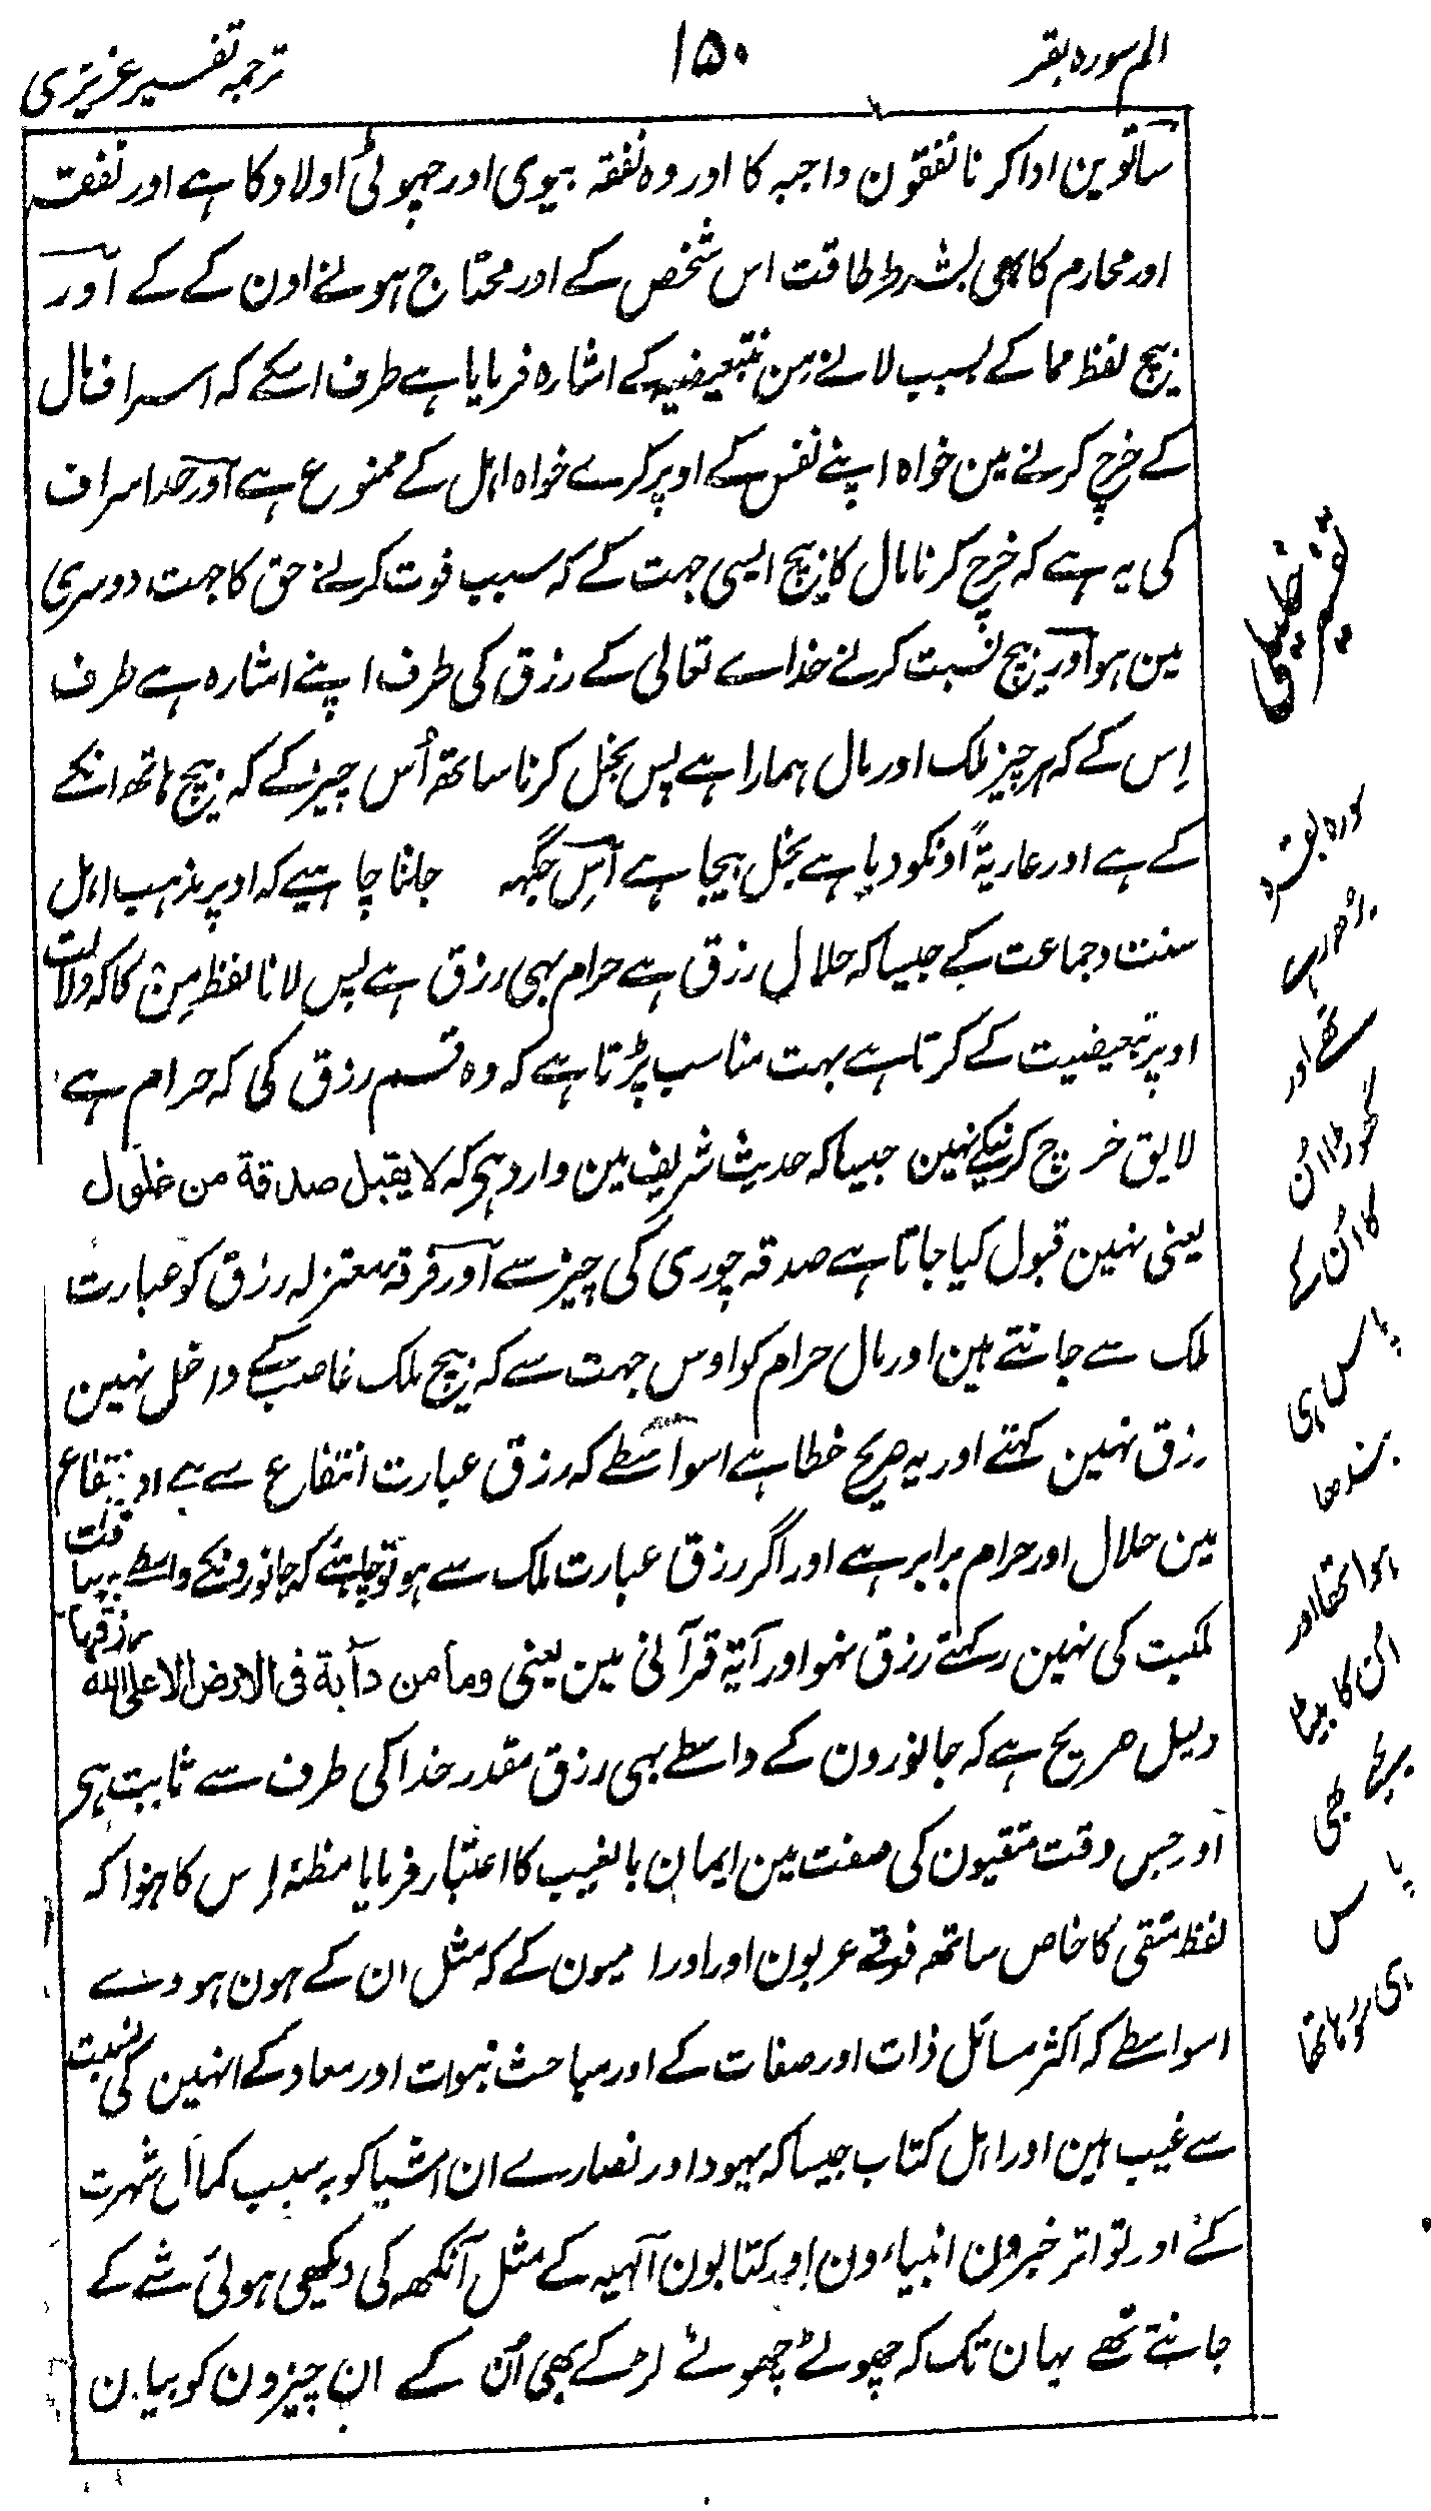 الم سورہ بقر
۱۵۰
ترجمہ تفسیر عزیزی
ساتوین ادا کرنا نفقون واجبہ کا اور وہ نفقہ بیوی اور چہوٹی اولاد کا ہے اور نفقہ
اور محارم کا بھی بشرط طاقت اس شخص کے اور محتاج ہونے اون کے کے اور
بیچ لفظ مما کے بسبب لانے من تبعیضیہ کے اشارہ فرمایا ہے طرف اسکے کہ اسراف مال
کے خرچ کرنے مین خواہ اپنے نفس کے اوپر کرے خواہ اہل کے ممنوع ہے اور حد اسراف
کی یہ ہے کہ خرچ کرنا مال کا بیچ ایسی جہت کے کہ سبب فوت کرنے حق کا جہت دوسری
مین ہو اور بیچ نسبت کرنے خداے تعالی کے رزق کی طرف اپنے اشارہ ہے طرف
اِس کے کہ ہر چیز ملک اور مال ہمارا ہے پس بخل کرنا ساتھ اُس چیز کے کہ بیچ ہاتھ انکے
کے ہے اور عاریۃً اونکو دیا ہے بخل بیجا ہے اِس جگہہ جاننا چاہیے کہ اوپر مذہب اہل
سنت وجماعت کے جیسا کہ حلال رزق ہے حرام بہی رزق ہے پس لانا لفظ مِن کا کہ دلالت
اوپر تبعیضیت کے کرتا ہے بہت مناسب پڑتا ہے کہ وہ قسم رزق کی کہ حرام ہے
لایق خرچ کرنیکے نہین جیسا کہ حدیث شریف مین وارد ہی کہ لا یقبل صدقة من غلول
یعنی نہین قبول کیا جاتا ہے صدقہ چوری کی چیز سے اور فرقہ معتزلہ رزق کو عبارت
ملک سے جانتے ہین اور مال حرام کو اوس جہت سے کہ بیچ ملک غاصب کے داخل نہین
رزق نہین کہتے اور یہ صریح خطا ہے اسواسطے کہ رزق عبارت انتفاع سے ہے اور انتفاع
مین حلال اور حرام برابر ہے اور اگر رزق عبارت ملک سے ہو تو چاہئے کہ جانورونکے واسطے کہ لیاقت
ملکیت کی نہین رکہتے رزق نہو اور آیۃ قرآنی مین یعنی وما من دآبة فی الارض الا علی الله رزقها
دلیل صریح ہے کہ جانورون کے واسطے بہی رزق مقدر خدا کی طرف سے ثابت ہی
اور جس وقت متقیون کی صفت مین ایمان بالغیب کا اعتبار فرمایا مظنہ اِس کا ہوا کہ
لفظ متقی کا خاص ساتھ فرقے عربون اور امیون کے کہ مثل ان کے ہون ہووے
اسواسطے کہ اکثر مسائل ذات اور صفات کے اور مباحث نبوات اور معاد کے انہین کی نسبت
سے غیب ہین اور اہل کتاب جیسا کہ یہود اور نصارے ان اشیا کو بہ سبب کمال شہرت
کے اور تواتر خبرون انبیاءون اور کتابون الٰہیہ کے مثل آنکھ کی دیکھی ہوئی شے کے
جانتے تھے یہان تک کہ چھوٹے چھوٹے لڑکے بھی اُن کے ان چیزون کو بیان
تفسیر
سورہ بقر
تھے اور
گھوڑا اُن
کا اُن کے
پاس ہی
بندھا
ہوا تھا اور
اُن کا بیٹا
یحی
پاس
ہی سوتا تھا